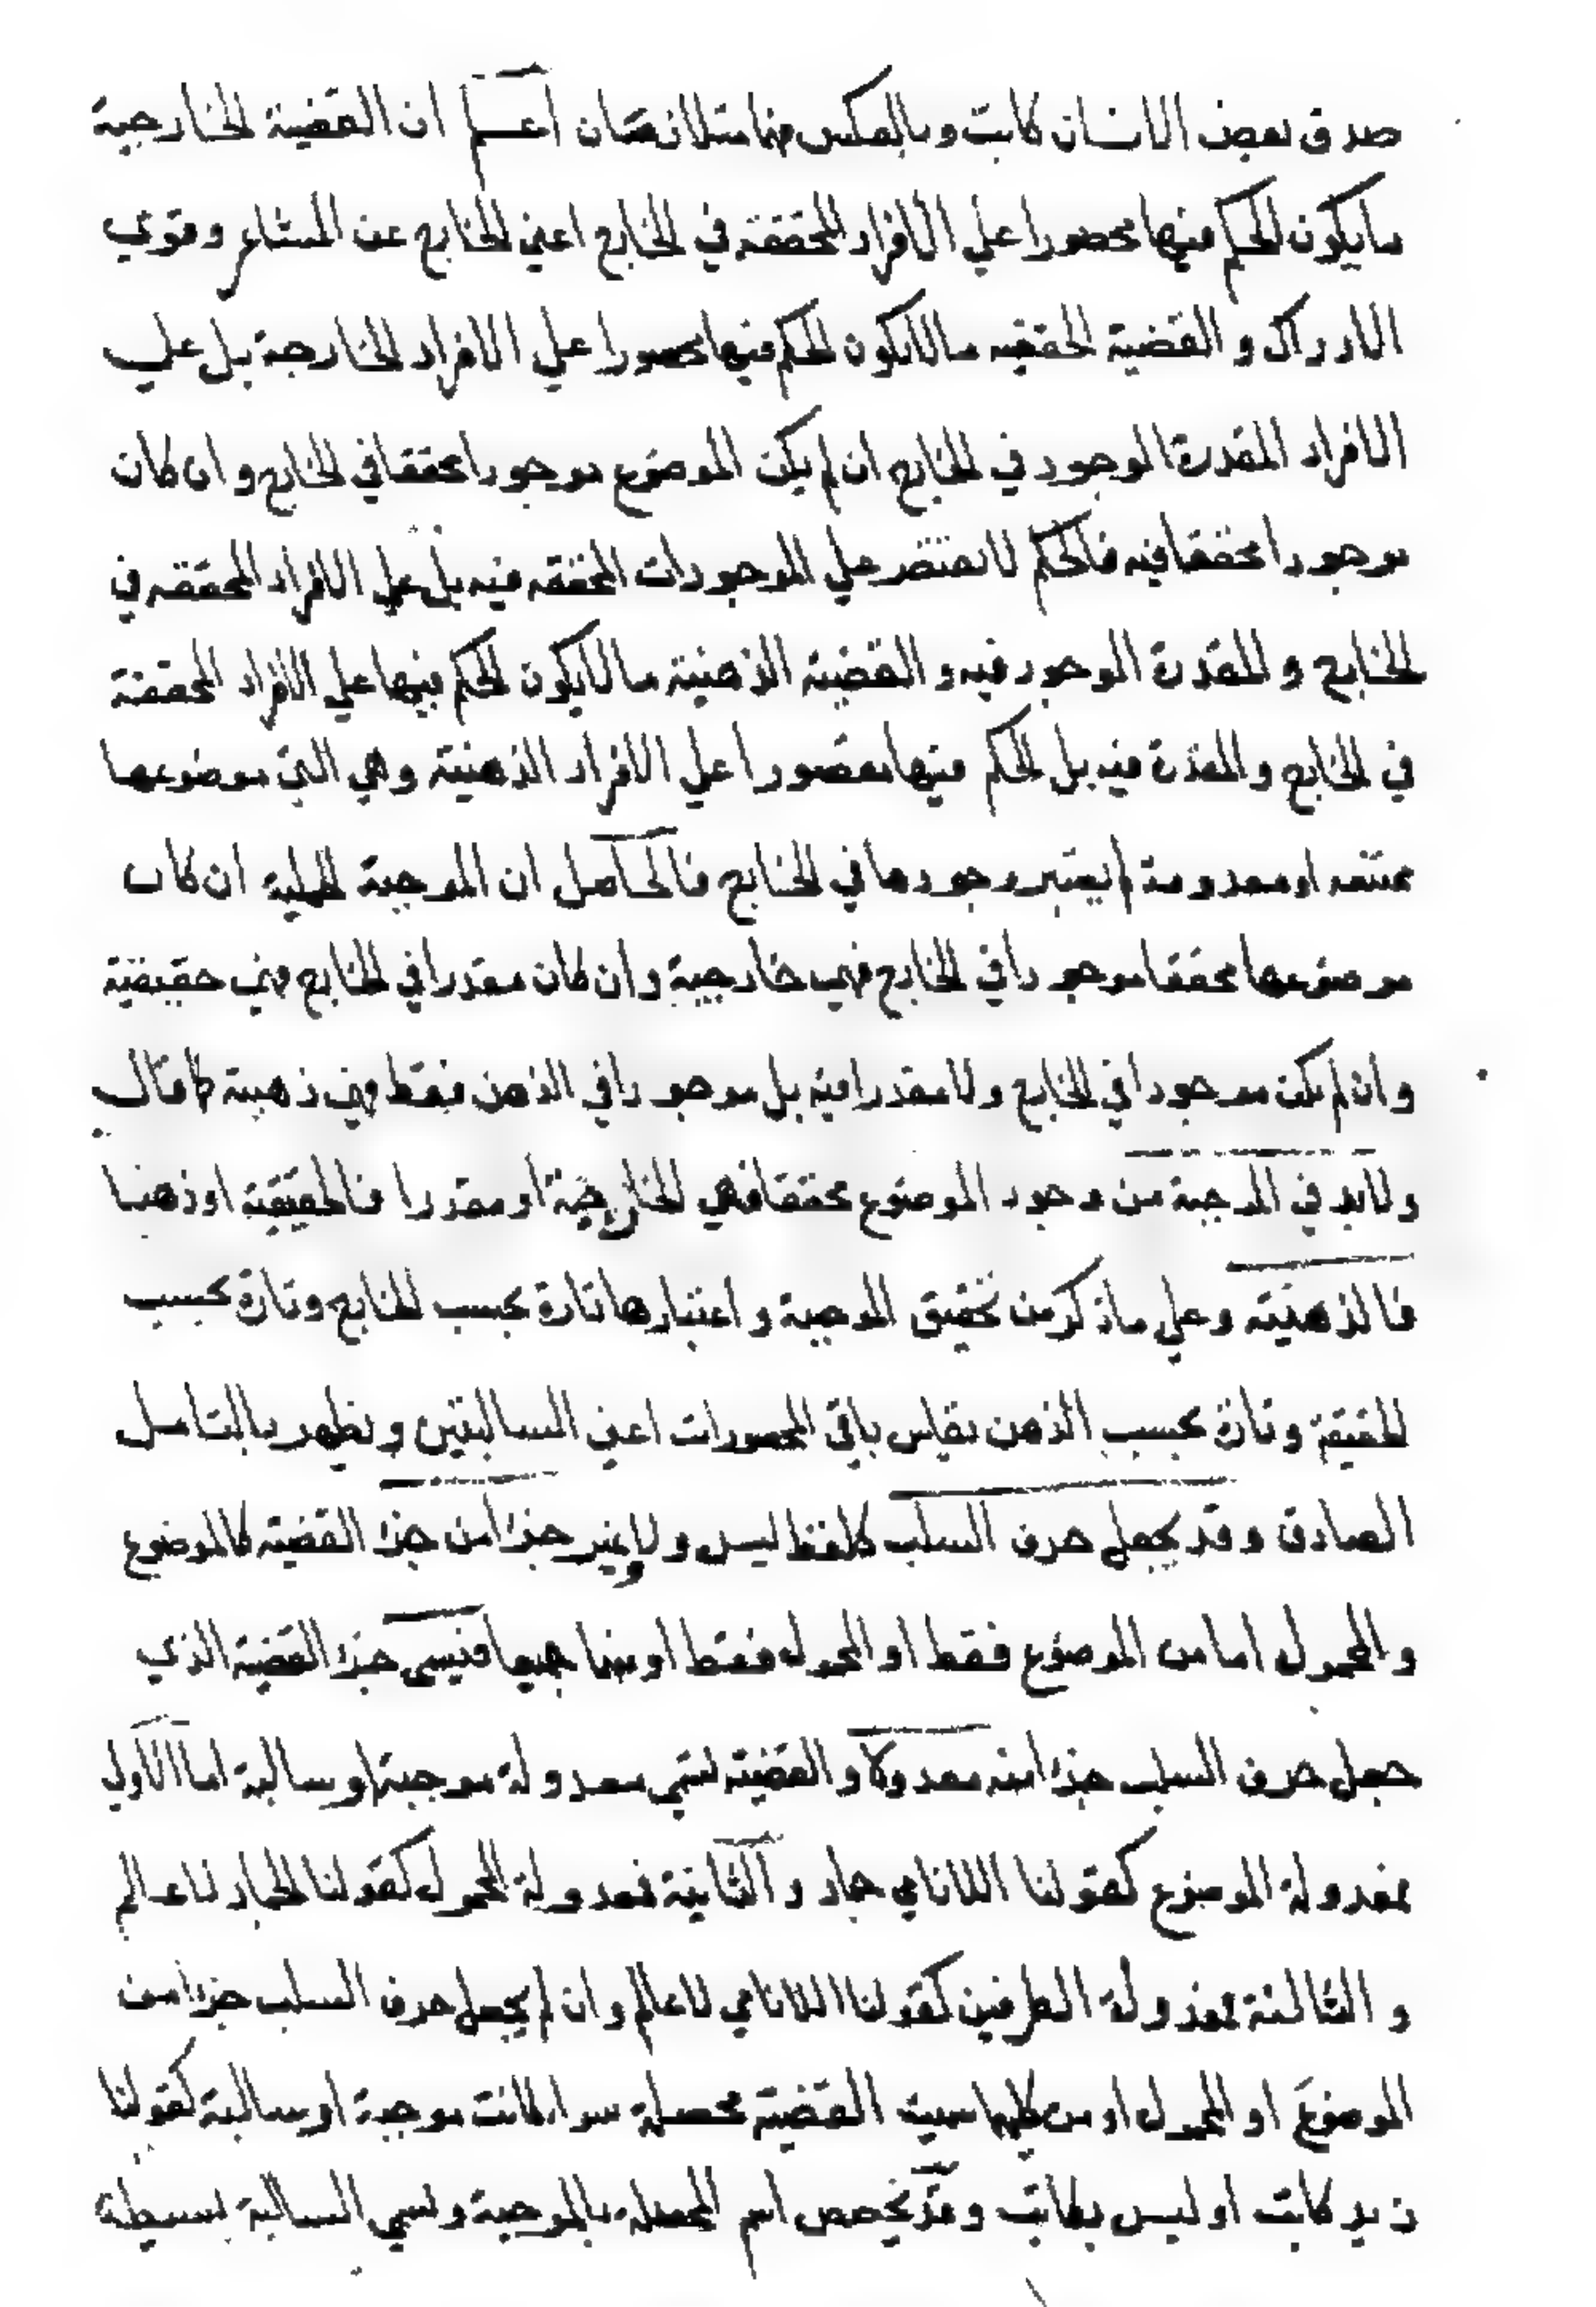 صدق بعض الانسان كاتب وبالعكس فهما متلازمتان اعلم ان القضية الخارجية
ما يكون الحكم فيها محصورا علي الافراد المحققة في الخارج اعني الخارج عن المشاعر وقوي
الادراك والقضية الحقيقيه ما لا يكون الحكم فيها محصورا علي الافراد الخارجة بل علي
الافراد المقدرة الوجود في الخارج ان لم يكن الموضوع موجودا محققا في الخارج وان كان
موجودا محققا فيه فالحكم لا يقتصر علي الموجودات المحققه فيه بل علي الافراد المحققه في
الخارج والمقدرة الوجود فيه والقضية الذهنية ما لا يكون الحكم فيها علي الافراد المحققة
في الخارج والمقدرة فيه بل الحكم فيها مقصورا علي الافراد الذهنية وهي التي موضوعها
ممتنعه او معدومة لم يعتبر وجودها في الخارج فالحاصل ان الموجبة الحملية ان كان
موضوعها محققا موجودا في الخارج فهي خارجية وان كان مقدرا في الخارج فهي حقيقية
وان لم يكن موجودا في الخارج ولا مقدرا فيه بل موجودا في الذهن فقط فهي ذهنية كما قال
ولا بد في الموجبة من وجود الموضوع محققا فهي الخارجية او مقدرا فالحقيقية او ذهنيا
فالذهنية وعلي ما ذكر من تحقيق الموجبة واعتبارها تارة بحسب الخارج وتارة بحسب
الحقيقة وتارة بحسب الذهن يقاس باقي المحصورات اعني السالبتين ويظهر بالتامل
الصادق وقد يجعل حرف السلب كلفظ ليس ولا وغير جزا من جزا القضية كالموضوع
والمحمول اما من الموضوع فقط او المحمول فقط او منهما جميعا فيسمي جزا القضية الذي
جعل حرف السلب جزا منه معدولا والقضية تسمي معدولة موجبة او سالبة اما الاول
فمعدولة الموضوع كقولنا اللانامي جماد والثانية فمعدولة المحمول كقولنا الجماد لا عالم
والثالثة فمعدولة الطرفين كقولنا اللانامي لا عالم وان لم يجعل حرف السلب جزا من
الموضوع او المحمول او من كليهما سميت القضية محصلة سواء كانت موجبة او سالبة كقولنا
زيد كاتب او ليس بكاتب وقد يخصص اسم المحصلة بالموجبة وتسمي السالبة بسيطة